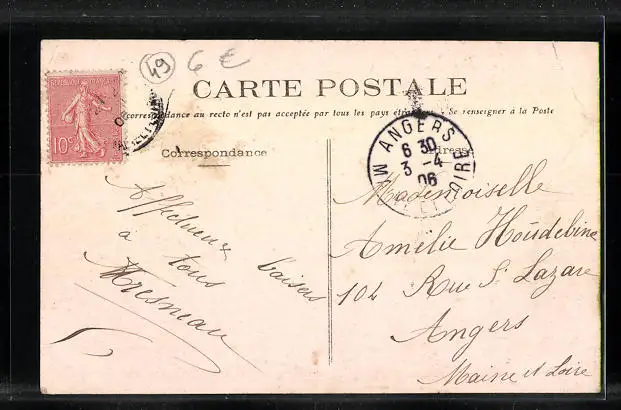 49 6 €
CARTE POSTALE
La correspondance au recto n'est pas acceptée par tous les pays étrangers. Se renseigner à la Poste
REPUBLIQUE FRANÇAISE
10c
Correspondance
Adresse
ANGERS
6 30
3 -4
06
MAINE ET LOIRE
Affectueux
baisers
à tous
Mademoiselle
Amélie Houdebine
102 Rue St Lazare
Angers
Maine et Loire